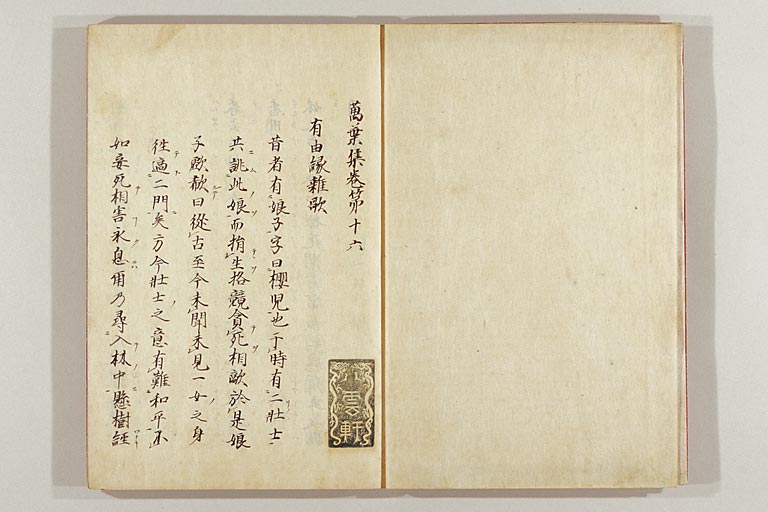 萬葉集卷第十六
有由縁雜歌
昔者有娘子字曰櫻兒也于時有二壯士
共誂此娘而捐生挌競貪死相敵於是娘
子歔欷曰從古至今未聞未見一女之身
徃適二門矣方今壯士之意有難和平不
如妾死相害永息爾乃尋入林中懸樹經
雲軒